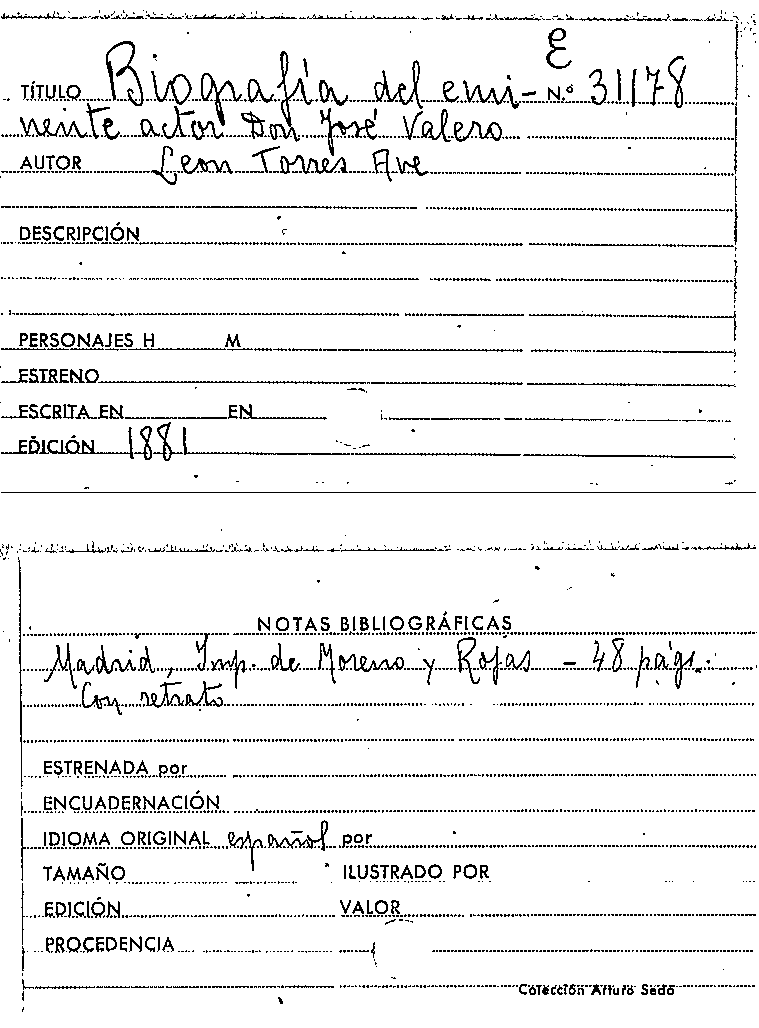 E
TÍTULO Biografía del emi- N.º 31178
nente actor Don José Valero
AUTOR Leon Torres Ave
DESCRIPCIÓN
PERSONAJES H M
ESTRENO
ESCRITA EN EN
EDICIÓN 1881
NOTAS BIBLIOGRÁFICAS
Madrid, Imp. de Moreno y Rojas - 48 págs.
Con retrato
ESTRENADA por
ENCUADERNACIÓN
IDIOMA ORIGINAL español por
TAMAÑO ILUSTRADO POR
EDICIÓN VALOR
PROCEDENCIA
Colección Arturo Sedó